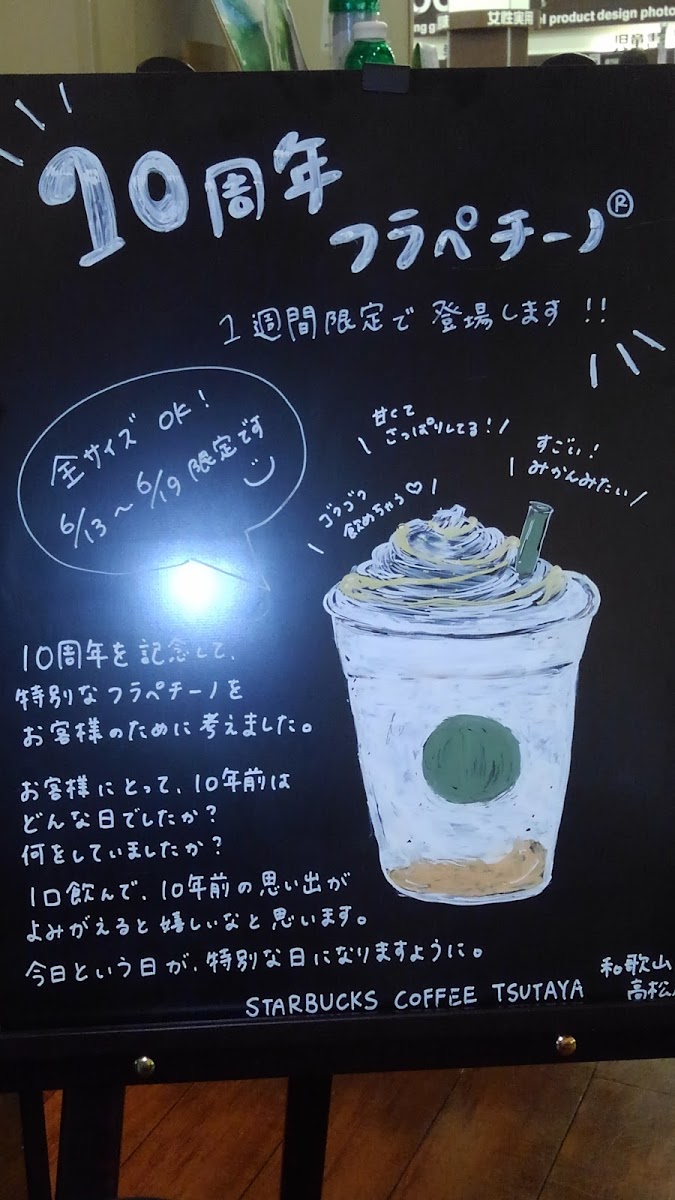 女性実用
product design photo
10周年
フラペチーノ®
1週間限定で登場します!!
全サイズ OK!
6/13~6/19限定です
甘くて
さっぱりしてる!
すごい!
みかんみたい
ゴクゴク
飲めちゃう♡
10周年を記念して、
特別なフラペチーノを
お客様のために考えました。
お客様にとって、10年前は
どんな日でしたか?
何をしていましたか?
1口飲んで、10年前の思い出が
よみがえると嬉しいなと思います。
今日という日が、特別な日になりますように。
STARBUCKS COFFEE TSUTAYA 和歌山
高松